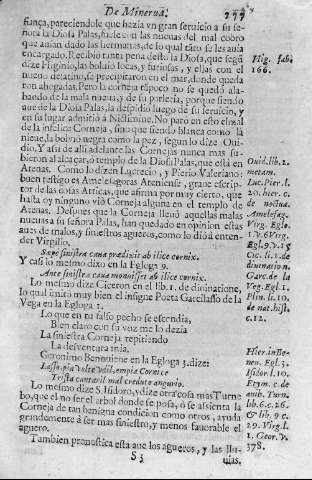 De Minerua. 277
fiança, pareciendole que hazia vn gran seruicio a su se-
ñora la Diosa Palas, fuesse con las nueuas del mal cobro
que auian dado las hermanas, de lo qual tãto se les auia
encargado. Recibiò tanta pena desto la Diosa, que segũ
dize Higinio, las boluiò locas, y furiosas, y ellas con el
nueuo desatino, se precipitaron en el mar, donde queda
ron ahogadas. Pero la corneja tãpoco no se quedò ala-
bando de la mala nueua, y de su parleria, porque siendo
aue de la Diosa Palas, la despidio luego de su seruicio, y
en su lugar admitiò a Nictimine. No parò en esto el mal
de la infelice Corneja, sino que siendo blanca como la
nieue, la boluiò negra como la pez, segun lo dize Oui-
dio. Y aun de alli adelante las Cornejas nunca mas su-
bieron al alcaçar, ò templo de la Diosa Palas, que està en
Atenas. Como lo dizen Lucrecio, y Pierio Valeriano;
buen testigo es Amelesagoras Ateniense, graue escrip-
tor de las cosas Atticas, que afirma por muy cierto, que
hasta oy ninguno viò Corneja alguna en el templo de
Atenas. Despues que la Corneja lleuò aquellas malas
nueuas a su señora Palas, han quedado en opinion estas
aues de malos, y siniestros agueros, como lo diò a enten-
der Virgilio,
Sæpe sinistra caua prædixit ab ilice cornix.
Y casi lo mesmo dixo en la Egloga 9.
Ante sinistra caua monuisset ab ilice cornix.
Lo mesmo dize Ciceron en el lib. 1. de diuinatione,
lo qual imitò muy bien el insigne Poeta Garcilasso de la
Vega en la Egloga 1.
Lo que en tu falso pecho se escondia,
Bien claro con su voz me lo dezia
La siniestra Corneja repitiendo
La desventura mia.
Geronimo Benouiene en la Egloga 3. dize:
Lo mesmo dize S. Isidoro, y dize otra cosa mas Turne
bo, que el no ser el arbol donde se posa, ò se assienta la
Corneja de tan benigna condicion como otros, ayuda
grandemente à ser mas siniestro, y menos fauorable el
aguero.
Tambien pronostica esta aue los agueros, y las llu-
S 3 uias.
Hig. fab.
166.
Ouid. lib. 2.
metam.
Luc. Pier. l.
20. hier. c.
de noctua.
Amelesag.
Virg. Eglo.
1. & Virg.
Egl. 9. v. 15
Cic. li. 1. de
diuination.
Garc. de la
Veg. Egl. 1.
Plin. li. 10.
de nat. hist.
c. 12.
Hier. in Be-
neu. Egl. 3.
Isidor. l. 10.
Etym. c. de
auib. Turn.
lib. 6. c. 26.
& lib. 9. c.
29. Virg. l.
1. Geor. v.
378.